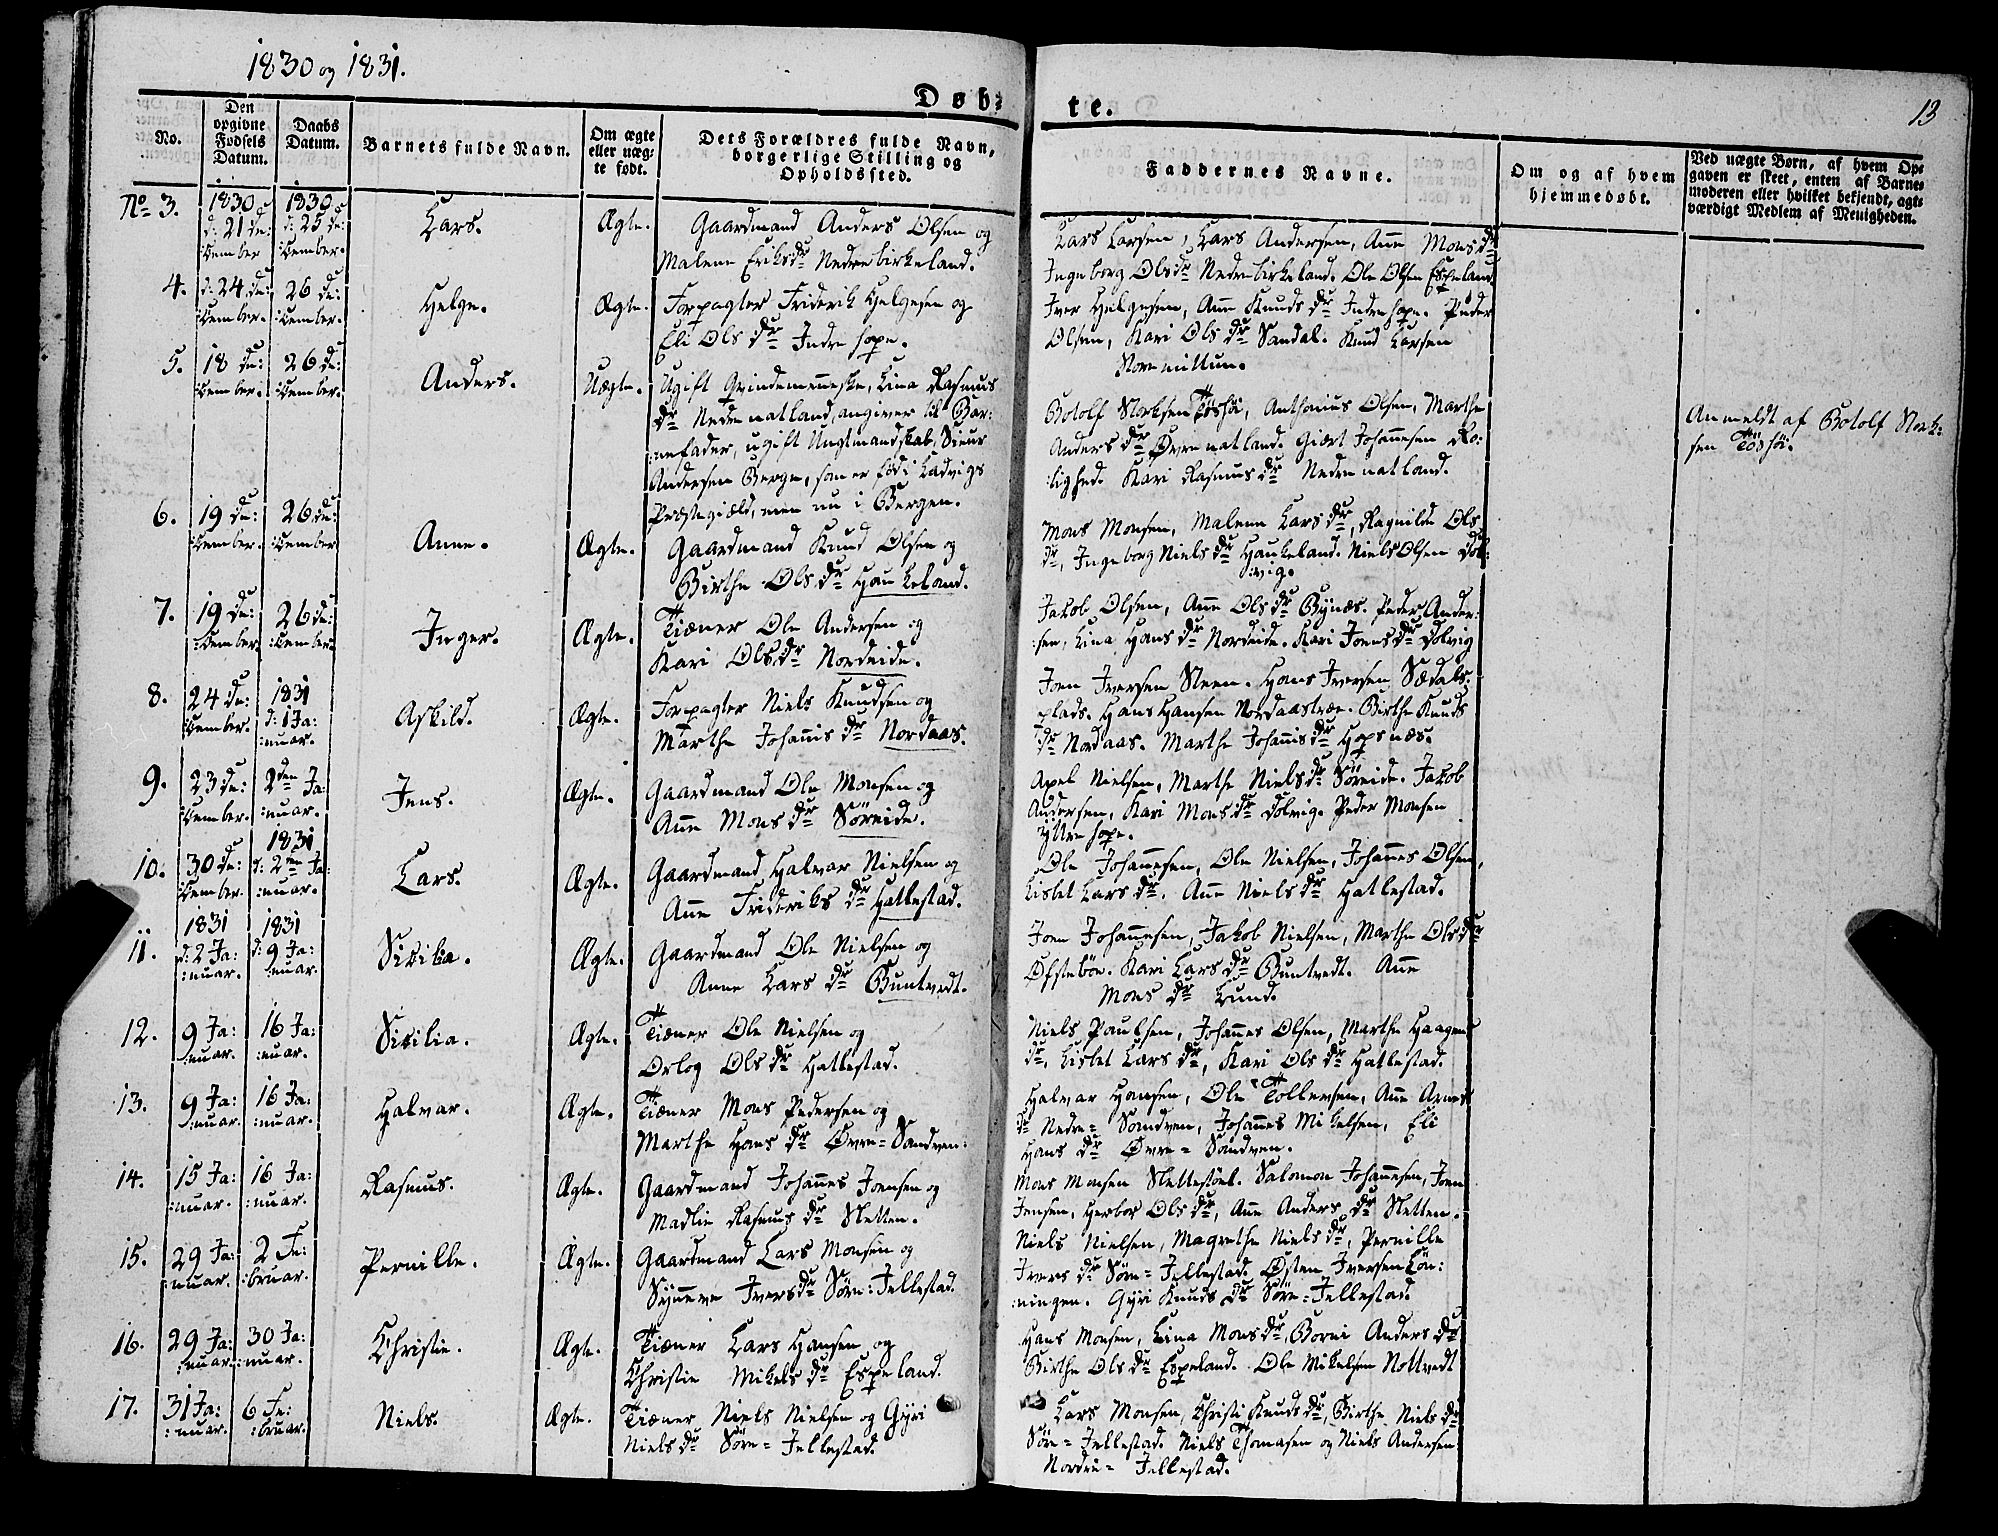 1830 og 1831.
Døb-
te.
13
No.
Den opgivne Fødsels Datum.
Daabs Datum.
Barnets fulde Navn.
Om ægte eller uæg-
te født.
Dets Forældres fulde Navn,
borgerlige Stilling og
Opholdssted.
Faddernes Navne.
Om og af hvem
hjemmedøbt.
Ved uægte Børn, af hvem Op-
gaven er skeet, enten af Barne-
moderen eller hvilket bekjendt, agt-
værdigt Medlem af Menigheden.
No 3.
1830 d: 21 De:
:cember
1830 d: 25 De:
:cember.
Lars.
Ægte.
Gaardmand Anders Olsen og
Malene Eriksdr Nedrebirkeland.
Lars Larsen, Lars Andersen, Anne Monsdr
Ingeborg Olsdr Nedrebirkeland. Ole Olsen Espeland
4.
d: 24 De:
:cember.
26 De:
:cember.
Helge.
Ægte.
Forpagter Friderik Helgesen og
Eli Olsdr Indrehope.
Iver Helgesen, Anne Knudsdr Indrehope. Peder
Olsen, Kari Olsdr Sandal. Knud Larsen
Storemillum.
5.
18 De:
:cember.
26 De:
:cember.
Anders.
Uægte.
Ugift Qvindemenneske, Lina Rasmus
dr Nedrenatland, angiver til Bar:
:nefader, ugift Ungtmandskab, Sieur
Andersen Berge, som er fød i Ladvigs
Præstegiæld, men nu i Bergen.
Botolf Storksen Tøshøi, Anthonius Olsen, Marthe
Andersdr Øvrenatland. Giært Johannesen Ro:
:lighed. Kari Rasmusdr Nedrenatland.
Anmeldt af Botolf Stork:
sen Tøshøi.
6.
19 De:
:cember.
26 De:
:cember
Anne.
Ægte.
Gaardmand Knud Olsen og
Birthe Olsdr Haukeland.
Mons Monsen, Malene Larsdr, Ragnilde Ols
dr, Ingeborg Nielsdr Haukeland. Niels Olsen Dol:
:vig.
7.
19 De:
:cember
26 De:
:cember.
Inger.
Ægte.
Tiæner Ole Andersen og
Kari Olsdr Nordeide.
Jakob Olsen, Anne Olsdr Bynæs. Peder Ander:
:sen, Lina Hansdr Nordeide. Kari Joensdr Dolvig
8.
24 De:
:cember.
1831
d: 1 Ja:
:nuar.
Askild.
Ægte.
Forpagter Niels Knudsen og
Marthe Johannisdr Nordaas.
Joen Iversen Steen. Hans Iversen Sædals:
plads. Hans Hansen Nordaastræe. Birthe Knuds
dr Nordaas. Marthe Johannisdr Hopsnæs.
9.
23 De:
:cember.
2den Ja:
:nuar.
Jens.
Ægte.
Gaardmand Ole Monsen og
Anne Monsdr Søreide.
Axel Nielsen, Marthe Nielsdr Søreide. Jakob
Andersen, Kari Monsdr Dolvig. Peder Monsen
Yttrehope.
10.
30 De:
:cember.
1831
d: 2den Ja:
:nuar.
Lars.
Ægte.
Gaardmand Halvar Nielsen og
Anne Frideriksdr Hatlestad.
Ole Johannesen, Ole Nielsen, Johannes Olsen,
Lisbet Larsdr, Anne Nielsdr Hatlestad.
11.
1831
d: 2 Ja:
:nuar.
1831
d: 9 Ja:
:nuar.
Sisilia.
Ægte.
Gaardmand Ole Nielsen og
Anne Larsdr Buntvedt.
Joen Johannesen, Jakob Nielsen, Marthe Olsdr
Øfstebøe. Kari Larsdr Buntvedt. Anne
Monsdr Lund.
12.
9 Ja:
:nuar.
16 Ja:
:nuar.
Sisilia.
Ægte.
Tiæner Ole Nielsen og
Orlog Olsdr Hatlestad.
Niels Paulsen, Johannes Olsen, Marthe Haagens
dr, Lisbet Larsdr, Kari Olsdr Hatlestad.
13.
9 Ja:
:nuar.
16 Ja:
:nuar.
Halvar.
Ægte.
Tiæner Mons Pedersen og
Marthe Hansdr Øvre=Sandven:
Halvar Hansen, Ole Tollevsen, Anne Arnes
dr Nedre= Sandven, Johannes Mikelsen, Eli
Hansdr Øvre= Sandven.
14.
15 Ja:
:nuar.
16 Ja:
:nuar.
Rasmus.
Ægte.
Gaardmand Johannes Joensen og
Madlie Rasmusdr Sletten.
Mons Monsen Slettestøel. Salomon Johannesen, Joen
Jensen, Herbor Olsdr, Anne Andersdr Sletten.
15.
29 Ja:
:nuar.
2 Fe:
:bruar.
Pernille.
Ægte.
Gaardmand Lars Monsen og
Synneve Iversdr Søre=Jellestad.
Niels Nielsen, Magrethe Nielsdr, Pernille
Iversdr Søre=Jellestad. Østen Iversen Løn:
:ningen. Gyri Knudsdr Søre=Jellestad.
16.
29 Ja:
:nuar.
30 Ja:
:nuar.
Christie.
Ægte.
Tiæner Lars Hansen og
Christie Mikelsdr Espeland.
Hans Monsen, Lina Monsdr, Borni Andersdr
Birthe Olsdr Espeland. Ole Mikelsen Nottvedt
17.
31 Ja:
:nuar.
6 Fe:
:bruar.
Niels.
Ægte.
Tiæner Niels Nielsen og Gyri
Nielsdr Søre=Jellestad.
Lars Monsen, Christi Knudsdr, Birthe Nielsdr
Søre=Jellestad. Niels Thomasen og Niels Andersen
Nordre=Jellestad.